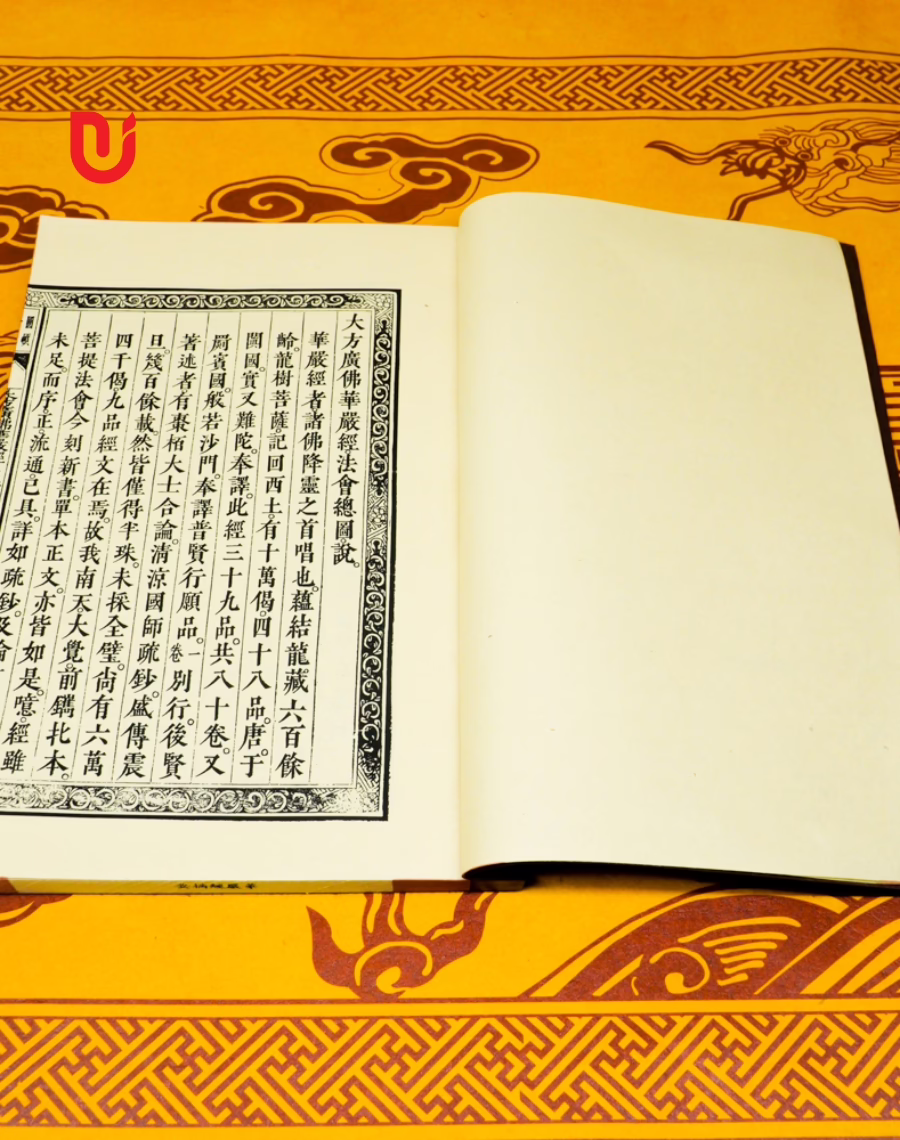 大方廣佛華嚴經法會總圖說。
華嚴經者諸佛降靈之首唱也。蘊結龍藏六百餘
齡。龍樹菩薩。記回西土。有十萬偈。四十八品。唐。于
闐國。實叉難陀。奉譯。此經三十九品。共八十卷。又
罽賓國。般若沙門。奉譯普賢行願品。一卷別行。後賢
著述者。有棗栢大士合論。清涼國師疏鈔。盛傳震
旦。幾百餘載。然皆僅得半珠。未採全璧。尙有六萬
四千偈。九品經文在焉。故我南天。大覺。前鐫北本。
菩提法會。今刻新書。單本正文。亦皆如是。噫。經雖
未足。而序。正。流通。已具。詳如疏鈔。